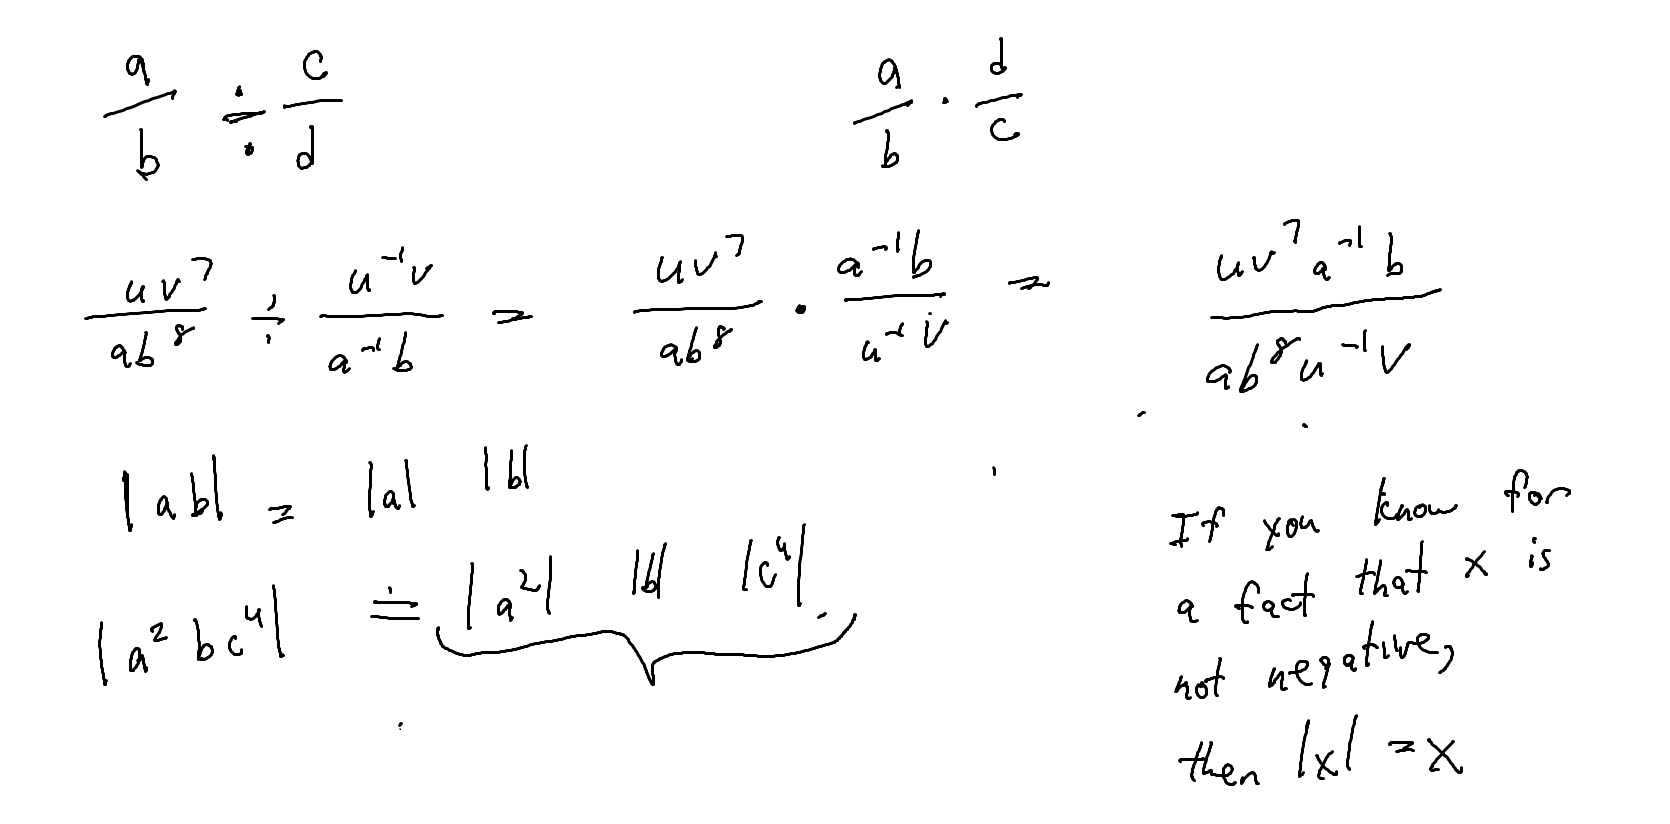 a/b ÷ c/d    a/b · d/c
uv⁷/ab⁸ ÷ u⁻¹v/a⁻¹b = uv⁷/ab⁸ · a⁻¹b/u⁻¹v = uv⁷a⁻¹b/ab⁸u⁻¹v
|ab| = |a| |b|
|a²bc⁴| = |a²| |b| |c⁴|
If you know for
a fact that x is
not negative,
then |x| = x